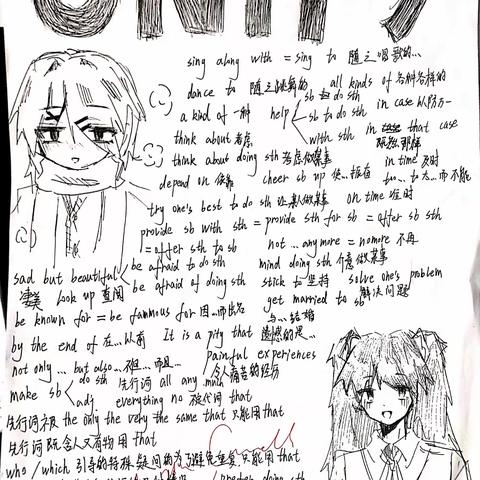 UNIT 9
sing along with = sing to 随之唱歌的...
dance to 随之跳舞的 all kinds of 各种各样的
a kind of 一种 help sb do sth
sb to do sth in case 以防万一
with sth in that case
think about 考虑
think about doing sth 考虑做某事 in time 及时
depend on 依靠 cheer sb up 使...振奋 too... to 太...而不能
try one's best to do sth 尽某人做某事 on time 准时
provide sb with sth = provide sth for sb = offer sb sth
= offer sth to sb not ... anymore = nomore 不再
sad but beautiful be afraid to do sth mind doing sth 介意做某事
凄美 look up 查阅 be afraid of doing sth stick to 坚持 solve one's problem
解决问题
be known for = be fammous for 因...而出名 get married to sb
与...结婚
by the end of 在...以前 It is a pity that 遗憾的是...
not only ... but also ... 不但...而且... painful experiences
令人痛苦的经历
make sb do sth 先行词 all any much
adj everything no 被代词 that
先行词被 the only the very the same that 只能用 that
先行词既含人又有物用 that
who / which 引导的特殊疑问句为了避免重复只能用 that
prefer doing sth